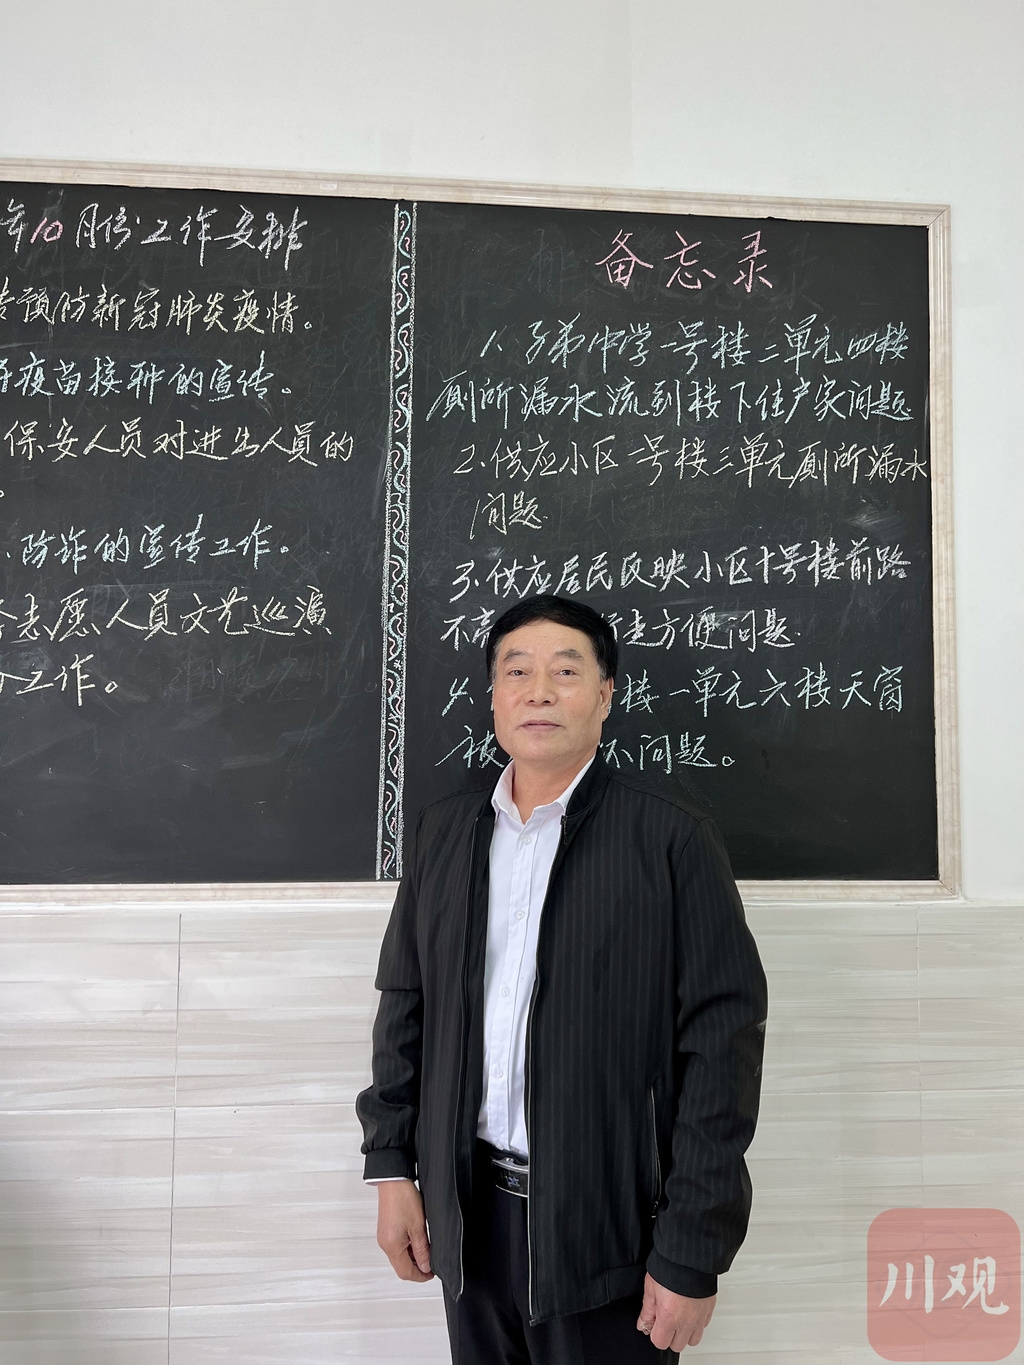 年10月份工作安排
传预防新冠肺炎疫情。
疫苗接种的宣传。
保安人员对进出人员的
。
、防诈的宣传工作。
志愿人员文艺巡演
工作。
备忘录
1、子弟中学一号楼二单元四楼
厕所漏水流到楼下住户家问题
2、供应小区二号楼三单元厕所漏水
问题.
3、供应居民反映小区十号楼前路
不亮 走方便问题.
4、 楼一单元六楼天窗
被 坏问题。
川观